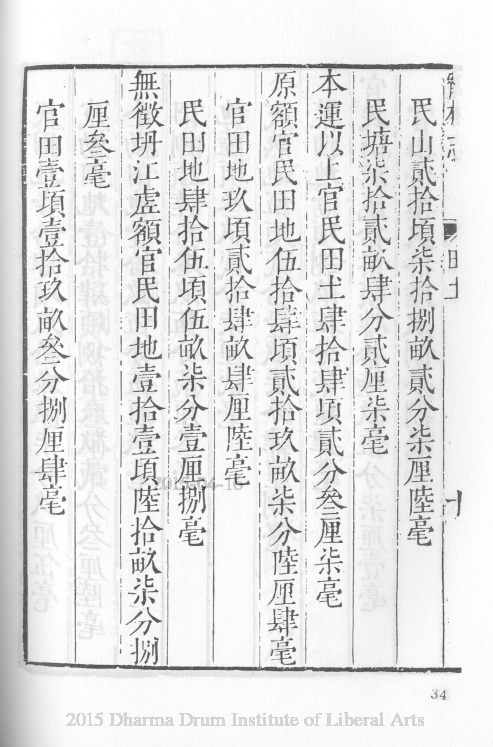 民山貳拾頃柒拾捌畝貳分柒厘陸毫
民塘柒拾貳畝肆分貳厘柒毫
本運以上官民田土肆拾肆頃貳分叄厘柒毫
原額官民田地伍拾肆頃貳拾玖畝柒分陸厘肆毫
官田地玖頃貳拾肆畝肆厘陸毫
民田地肆拾伍頃伍畝柒分壹厘捌毫
無徵坍江虛額官民田地壹拾壹頃陸拾畝柒分捌
厘叄毫
官田壹頃壹拾玖畝叄分捌厘肆毫
田土
十
34
2015 Dharma Drum Institute of Liberal Arts